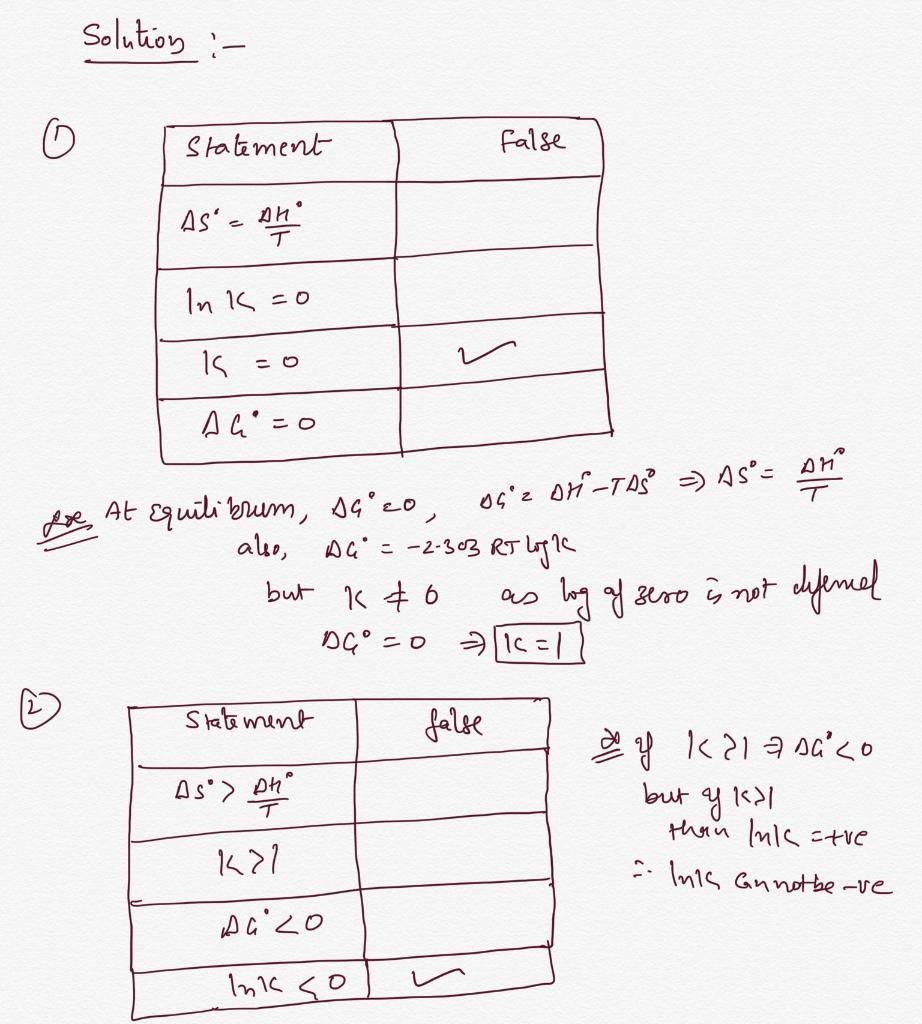 Solution :-
①
Statement False
ΔS° = ΔH°/T
ln K = 0
K = 0 ✓
ΔG° = 0
At Equilibrum, ΔG° = 0, ΔG° = ΔH° - TΔS° ⇒ ΔS° = ΔH°/T
also, ΔG° = -2.303 RT log K
but K ≠ 0 as log of zero is not defined
ΔG° = 0 ⇒ K = 1
②
Statement false
ΔS° > ΔH°/T
K > 1
ΔG° < 0
ln K < 0 ✓
if K > 1 ⇒ ΔG° < 0
but if K > 1
then ln K = +ve
∴ ln K Cannot be -ve